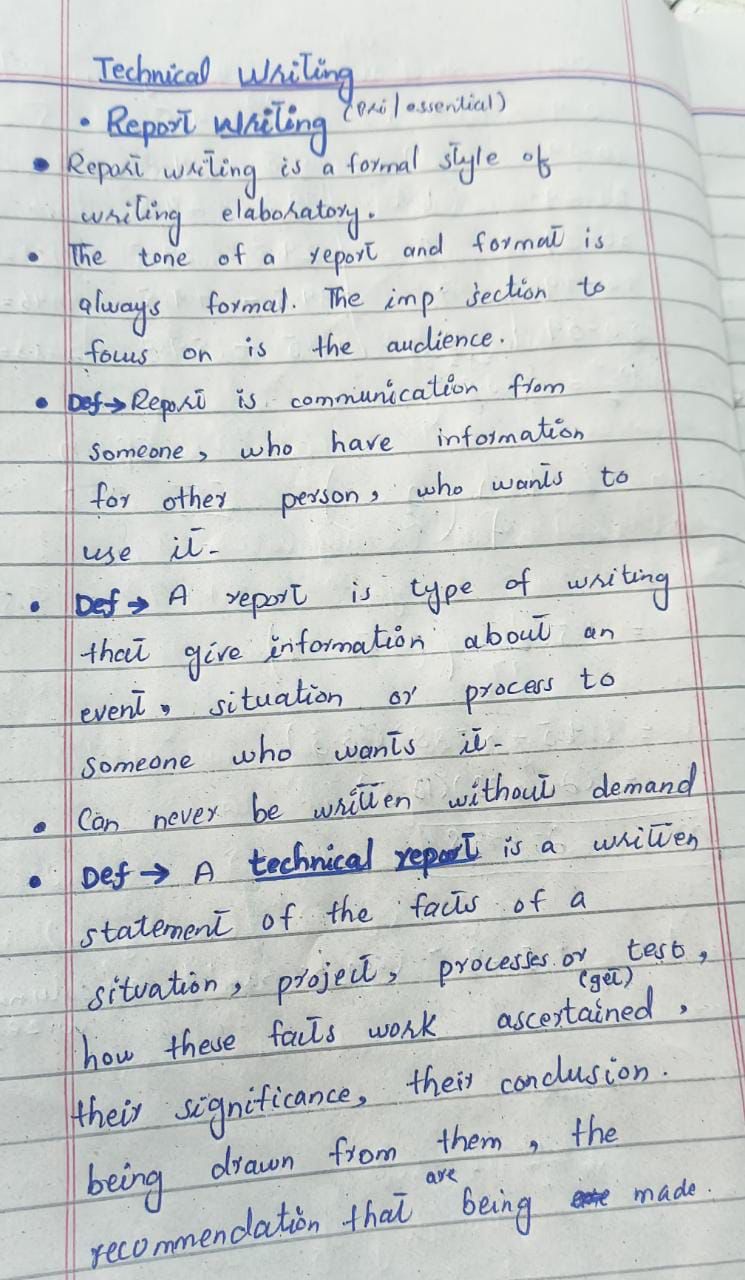 Technical Writing
• Report Writing (pri/essential)
• Report writing is a formal style of
writing elaboratory.
• The tone of a report and format is
always formal. The imp section to
focus on is the audience.
• Def → Report is communication from
someone, who have information
for other person, who wants to
use it.
• Def → A report is type of writing
that give information about an
event, situation or process to
someone who wants it.
• Can never be written without demand
• Def → A technical report is a written
statement of the facts of a
situation, project, processes or test,
(get)
how these facts work ascertained,
their significance, their conclusion.
being drawn from them, the
are
recommendation that being made.